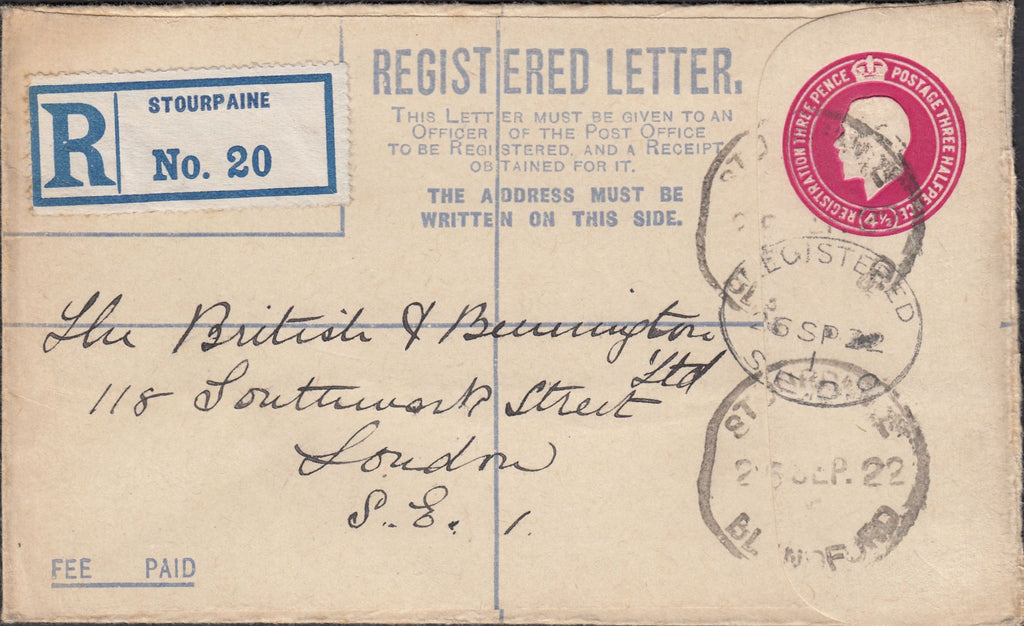 REGISTERED LETTER.
THIS LETTER MUST BE GIVEN TO AN
OFFICER OF THE POST OFFICE
TO BE REGISTERED, AND A RECEIPT
OBTAINED FOR IT.
THE ADDRESS MUST BE
WRITTEN ON THIS SIDE.
R
STOURPAINE
No. 20
REGISTRATION THREE PENCE POSTAGE THREE HALFPENCE
4½
REGISTERED
26 SP 22
S.E.D.O.
26 SEP. 22
BLANDFORD
The British & Bennington
Ltd
118 Southwark Street
London
S.E. 1
FEE PAID